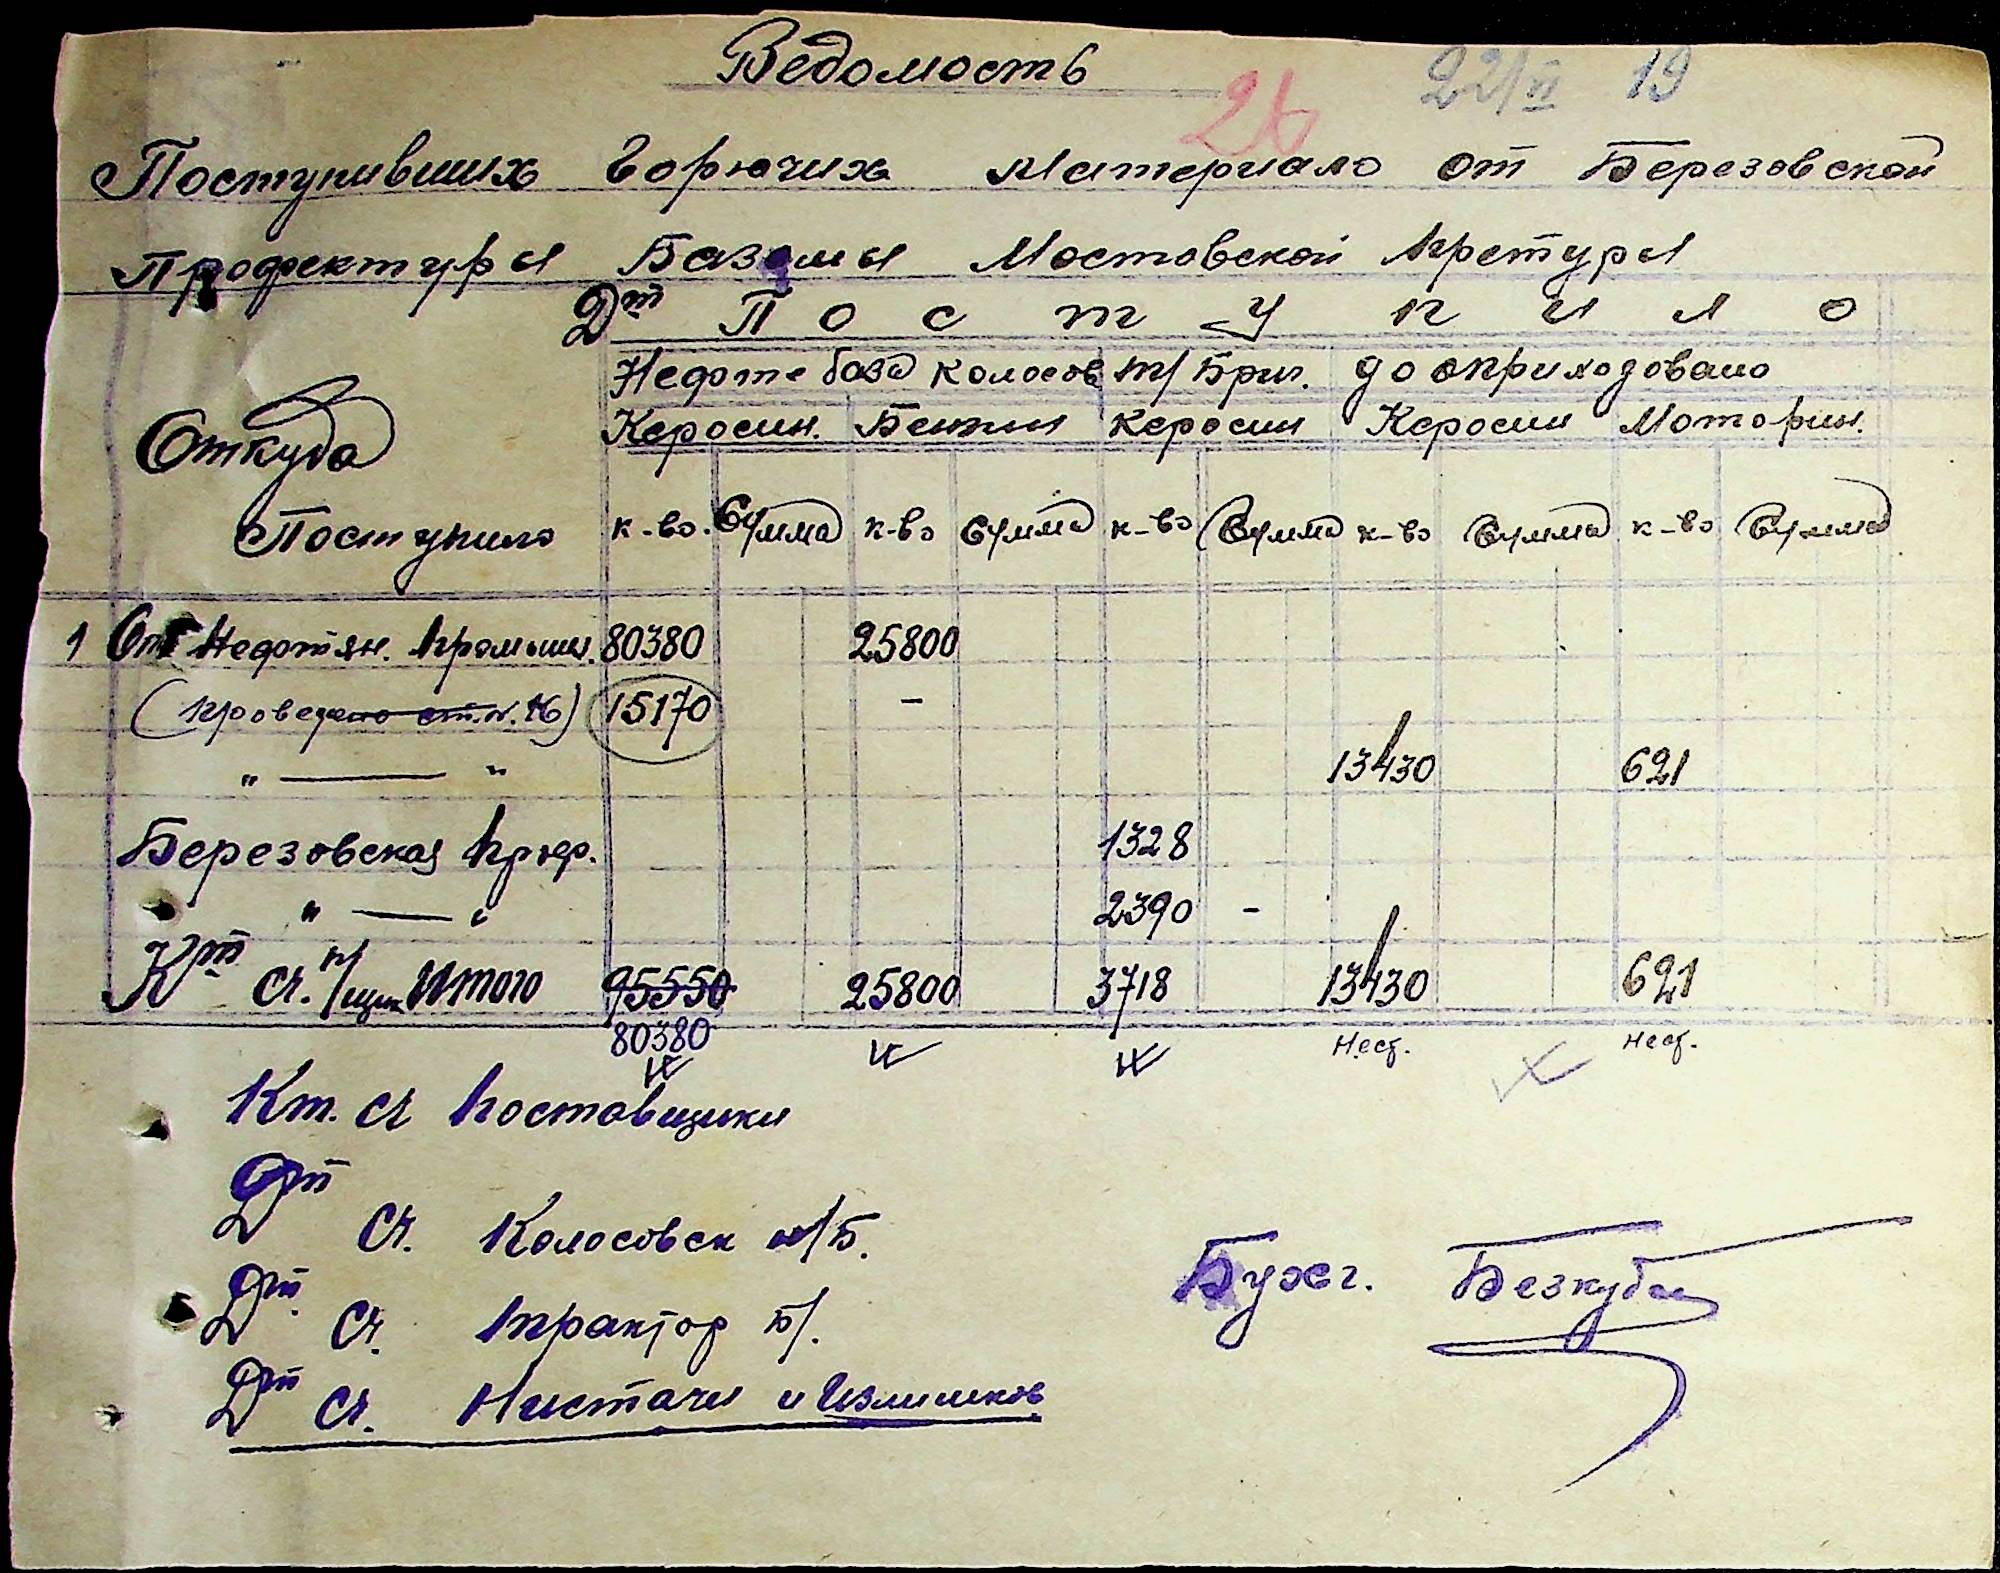 Ведомость
26 22/VI 19
Поступивших Горючих Материало от Березовской
Профектуры Базамы Мостовской претуры
Дт П о с т у п и л о
Нефте база колосов т/Бриг. до оприходовано
Керосин. Бензин керосин Керосин Моторин.
Откуда
Поступило к-во. Сумма к-во Сумма к-во Сумма к-во Сумма к-во Сумма
1 От Нефтян. промыш. 80380 25800
(проведено ст. 16) 15170 -
" — " 13430 621
Березовская преф. 1328
" — " 2390 -
Кт сч. п/щик Итого 95550 25800 3718 13430 621
80380 Нест. Нест.
Кт. сч поставщики
Дт сч. Колосовск н/Б.
Дт. сч. трактор б/.
Дт сч. Нистачи и Излишков
Бухг. Безкуб